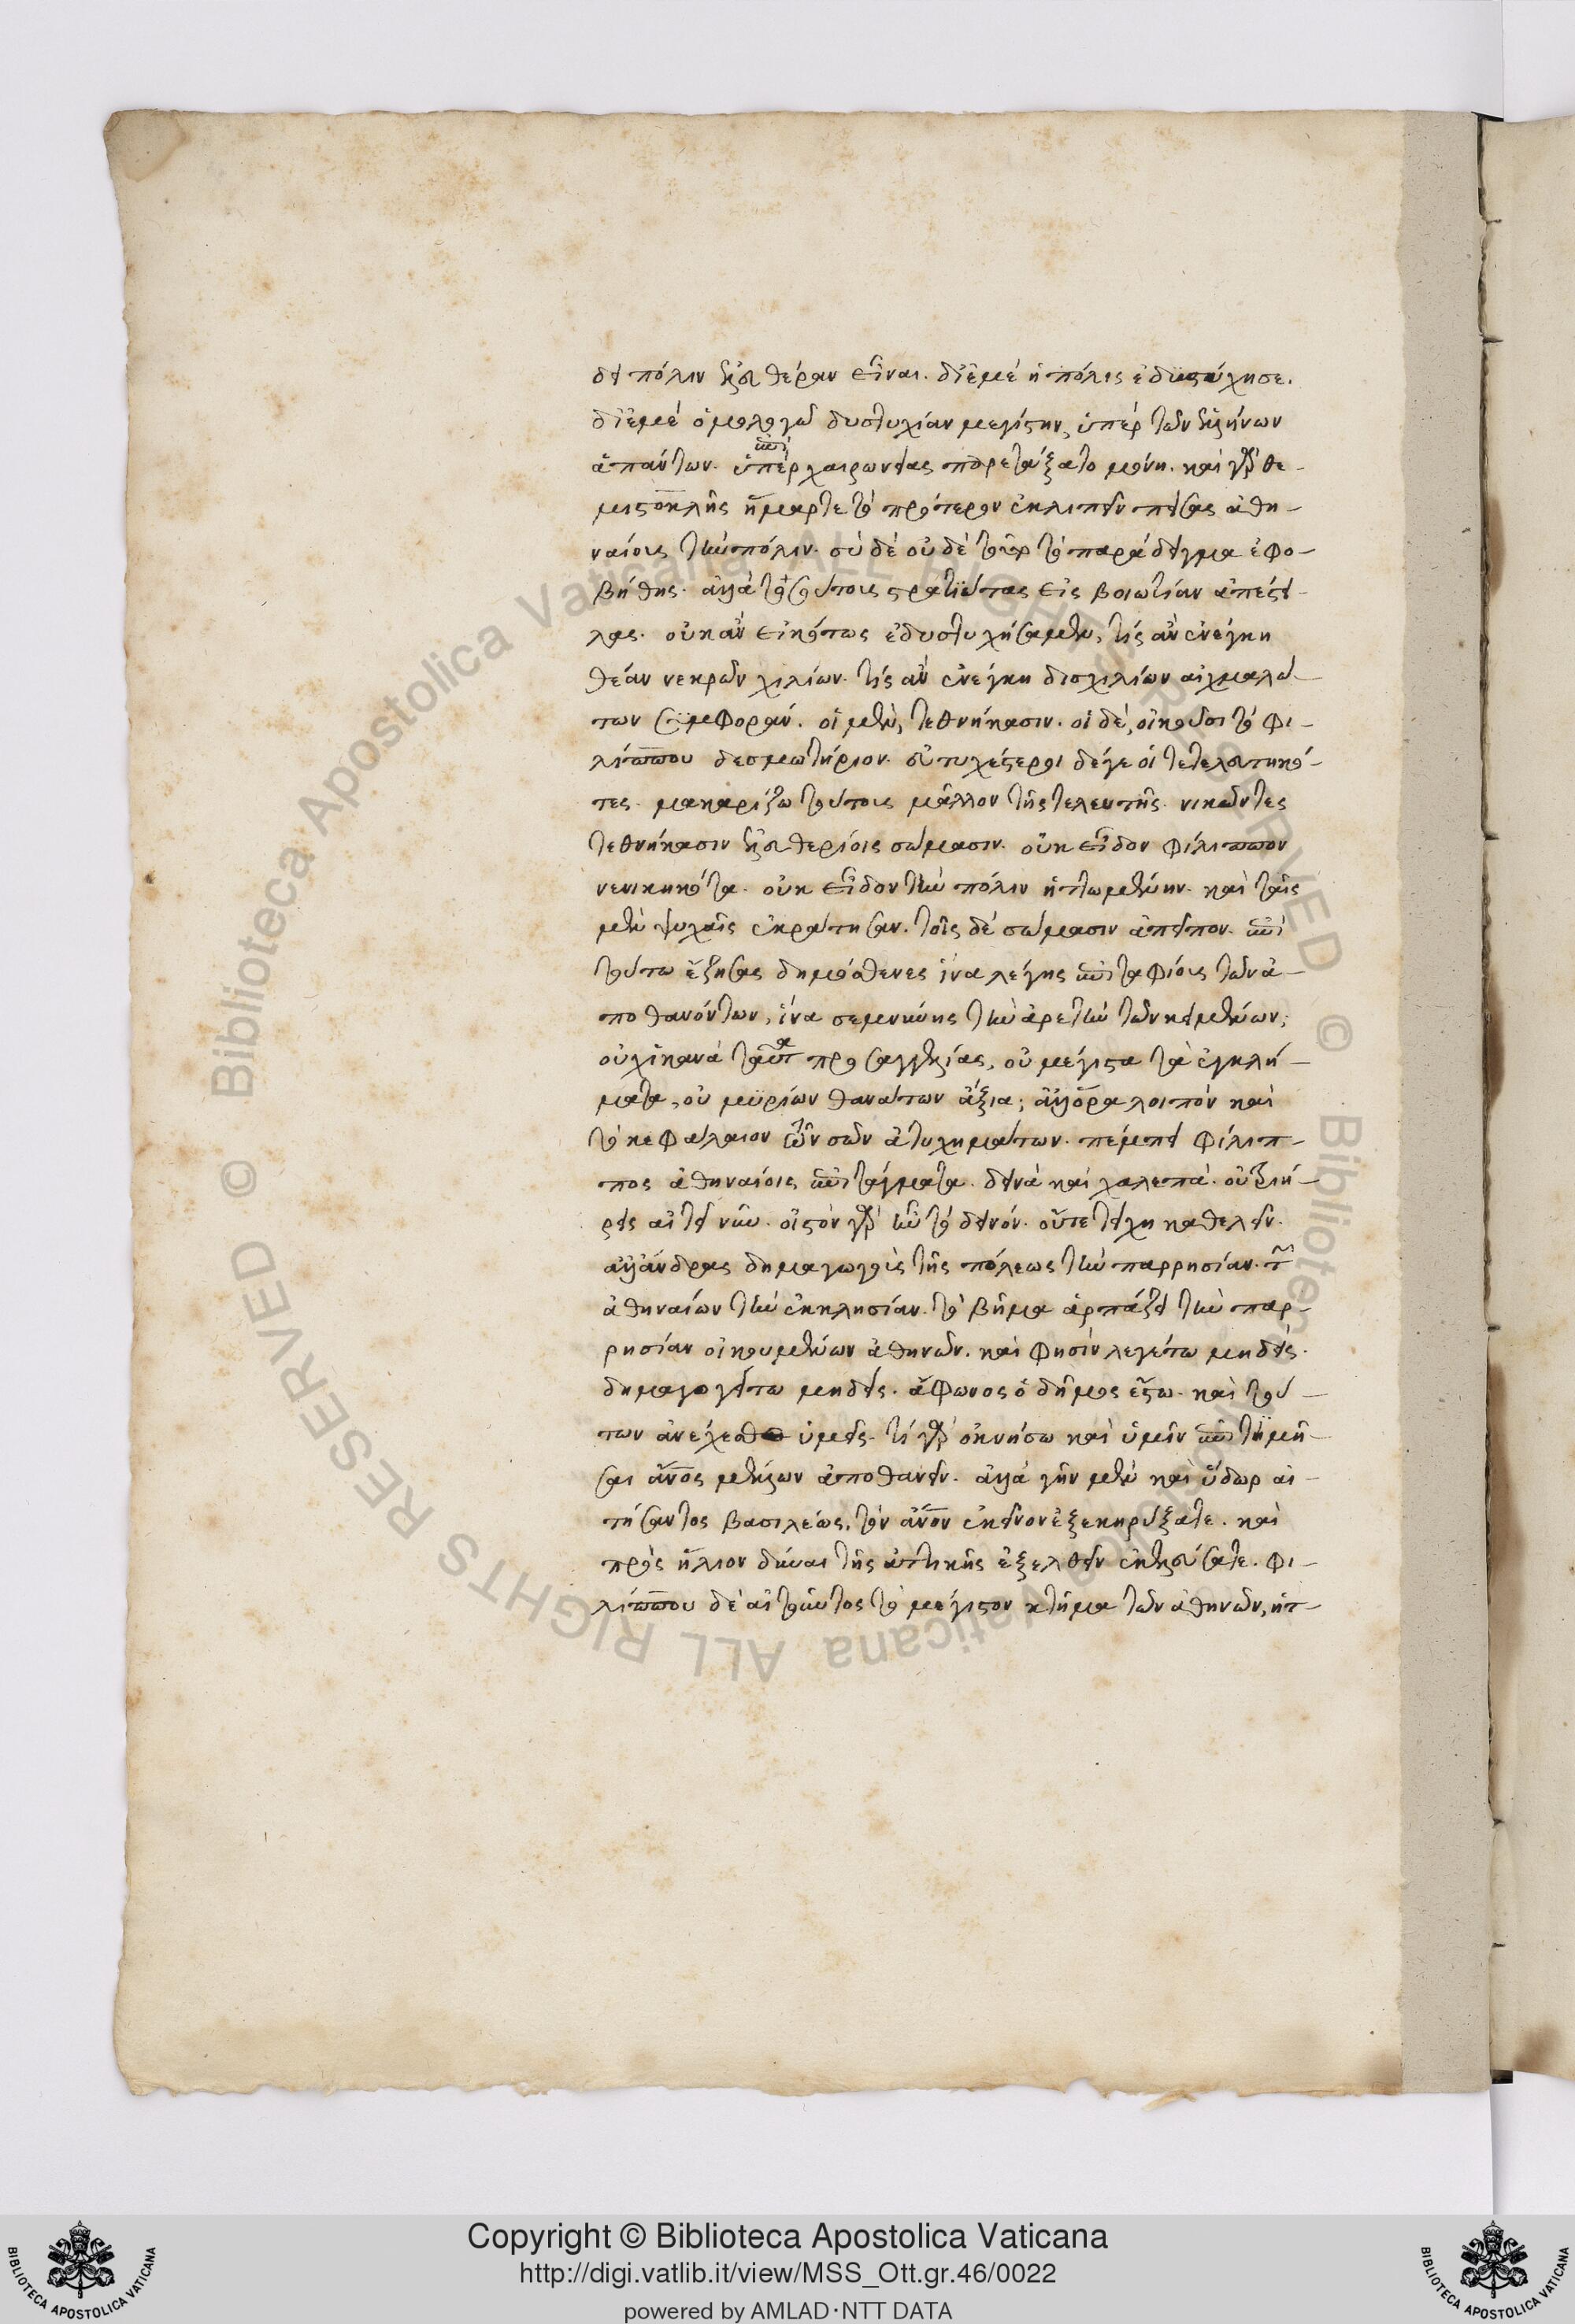 δει πόλιν ἐλευθέραν εἶναι. δι ἐμὲ ἡ πόλις ἐδυστύχησε.
δι ἐμὲ ὁμολογῶ δυστυχίαν μεγίστην, ὑπὲρ τῶν ἑλλήνων
ἁπάντων. ὑπὲρ χαιρωνείας παρετάξατο μόνη. καὶ γὰρ θε-
μιστοκλῆς ἥμαρτε τὸ πρότερον ἐκλιπεῖν πείσας ἀθη-
ναίοις τὴν πόλιν. σὺ δὲ οὐδὲ τὸ παράδειγμα ἐφο-
βήθης. ἀλλὰ τοσούτοις στρατιώτας εἰς βοιωτίαν ἀπέστει-
λας. οὐκ ἂν εἰκότως ἐδυστυχήσαμεν, τίς ἂν ἐνέγκη
θέαν νεκρῶν χιλίων. τίς ἂν ἐνέγκη δισχιλίων αἰχμαλώ-
των συμφοράν. οἱ μὲν, τεθνήκασιν. οἱ δὲ, οἰκοῦσι τὸ φι-
λίππου δεσμωτήριον. εὐτυχέστεροι δέ γε οἱ τετελευτηκό-
τες. μακαρίζω τούτοις μᾶλλον τῆς τελευτῆς. νικῶντες
τεθνήκασιν ἐλευθερίοις σώμασιν. οὐκ εἶδον φίλιππον
νενικηκότα. οὐκ εἶδον τὴν πόλιν ἡττωμένην. καὶ ταῖς
μὲν ψυχαῖς ἐκράτησαν. τοῖς δὲ σώμασιν ἀπεῖπον. ἐπὶ
τούτω ἔζησας δημόσθενες ἵνα λέγης ἐπιταφίοις τῶν ἀ-
ποθανόντων, ἵνα σεμνύνης τὴν ἀρετὴν τῶν κειμένων;
οὐχ ἱκανὰ ταῦτα προσαγγελίας, οὐ μέγιστα τὰ ἐγκλή-
ματα, οὐ μυρίων θανάτων ἄξια; ἀλλ ὅρα λοιπὸν καὶ
τὸ κεφάλαιον τῶν σῶν ἀτυχημάτων. πέμπει φίλιπ-
πος ἀθηναίοις ἐπιτάγματα. δεινὰ καὶ χαλεπά. οὐ τριή-
ρεις αἰτεῖ νῦν. οἰστὸν γὰρ ἦν τὸ δεινόν. οὔτε τείχη καθελεῖν.
ἀλλ ἄνδρας δημαγωγοὶς τῆς πόλεως τὴν παρρησίαν. τῶν
ἀθηναίων τὴν ἐκκλησίαν. τὸ βῆμα ἁρπάζει τὴν παρ-
ρησίαν οἰκουμένων ἀθηνῶν. καὶ φησὶν λεγέτω μηδείς.
δημαγογείτω μηδείς. ἄφωνος ὁ δῆμος ἔστω. καὶ τού-
των ἀνέχεσθε ὑμεῖς. τί γὰρ ὀκνήσω καὶ ὑμῖν ἐπιτιμῆ-
σαι ἄνος μέλλων ἀποθανεῖν. ἀλλὰ γῆν μὲν καὶ ὕδωρ αἰ-
τήσαντος βασιλέως, τὸν ἄνον ἐκεῖνον ἐξεκηρύξατε. καὶ
πρὸς ἥλιον δῦναι τῆς ἀττικῆς ἐξελθεῖν ἐκελεύσατε. φι-
λίππου δὲ αἰτοῦντος τὸ μέγιστον κτῆμα τῶν ἀθηνῶν, ἡτ-
Copyright © Biblioteca Apostolica Vaticana
http://digi.vatlib.it/view/MSS_Ott.gr.46/0022
powered by AMLAD·NTT DATA
BIBLIOTECA APOSTOLICA VATICANA
BIBLIOTECA APOSTOLICA VATICANA
© Biblioteca Apostolica Vaticana ALL RIGHTS RESERVED
© Biblioteca Apostolica Vaticana ALL RIGHTS RESERVED